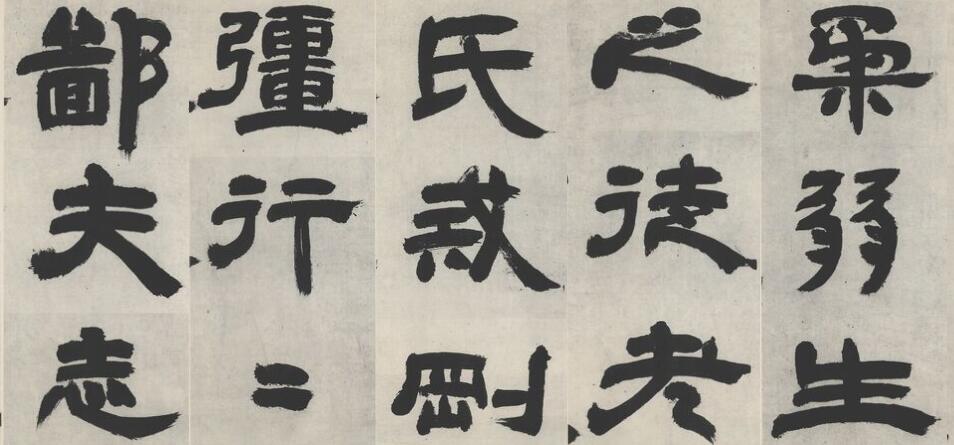 柔弱生
之徒老
氏戒剛
彊行〻
鄙夫志